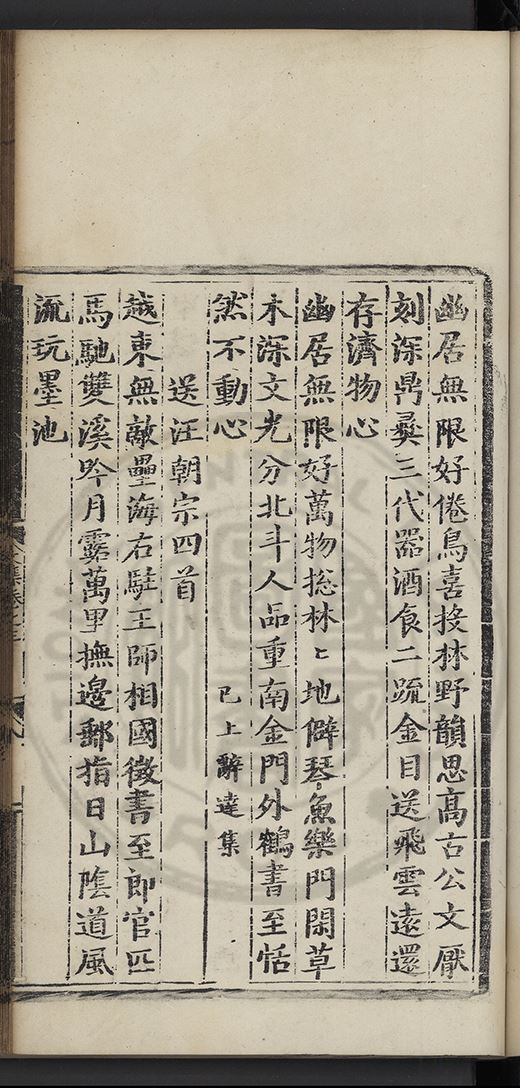 幽居無限好倦鳥喜投林野韻思高古公文厭
刻深鼎彝三代器酒食二䟽金目送飛雲遠還
存濟物心
幽居無限好萬物捴林〻地僻琴魚樂門閑草
木深文光分北斗人品重南金門外鶴書至恬
然不動心
已上辭達集
送汪朝宗四首
越東無敵壘海右駐王師相國徵書至郎官匹
馬馳雙溪吟月露萬里撫邊郵指日山陰道風
流玩墨池